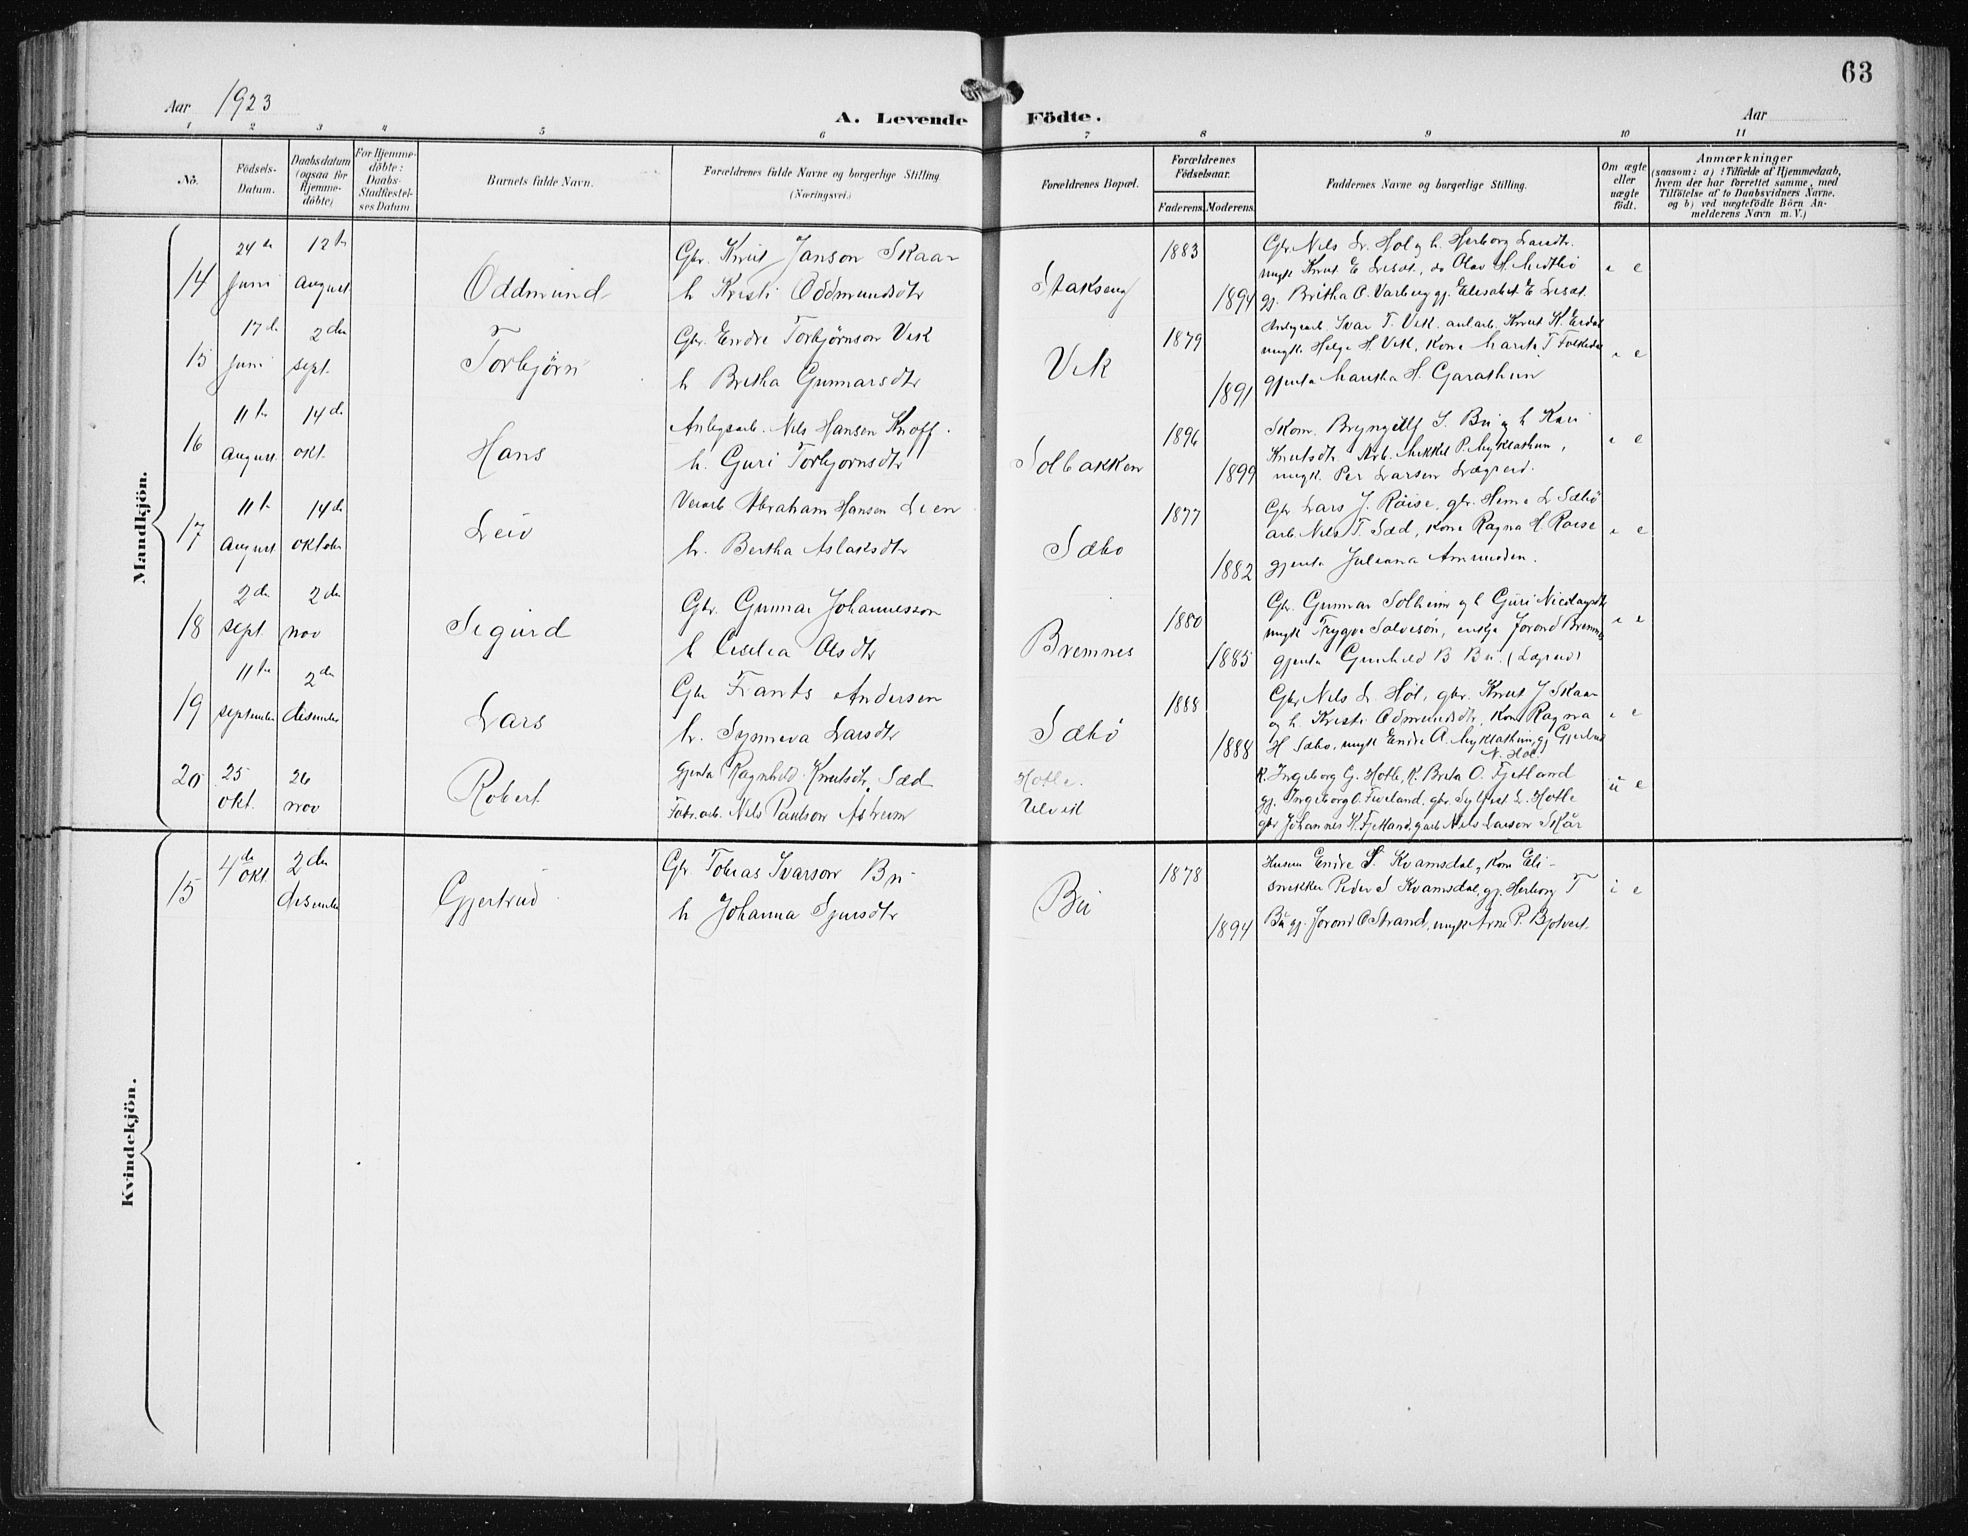 63
Aar 1923
A. Levende Födte.
Aar
1 2 3 4 5 6 7 8 9 10 11
No.
Födsels-
Datum.
Daabsdatum
(ogsaa for
Hjemme-
döbte)
For Hjemme-
döbte:
Daabs-
Stadfæstel-
ses Datum
Barnets fulde Navn.
Forældrenes fulde Navne og borgerlige Stilling
(Næringsvei.)
Forældrenes Bopæl.
Forældrenes
Födselsaar.
Faderens.
Moderens.
Faddernes Navne og borgerlige Stilling.
Om ægte
eller
uægte
födt.
Anmærkninger
(saasom: a) i Tilfælde af Hjemmedaab,
hvem der har forrettet samme, med
Tilföielse af to Daabsvidners Navne.
og b) ved uægtefödte Börn An-
melderens Navn m. V.)
Mandkjön.
14
24 de
Juni
12 te
August
Oddmund
Gbr. Knut Janson Skaar
h Kristi Oddmundsdtr
Stakseng
1883
1894
Gbr. Nils L. Hol og h. Herborg Larsdtr.
ungk Knut E Lisæt, do Olav H. Medtbø
gj. Britha O. Varberg gj. Elisabet E Lisæt.
e
15
17 de
Juni
2 den
sept.
Torbjørn
Gbr. Endre Torbjørnson Vik
h Britha Gunnarsdtr
Vik
1879
1891
Anlegsarb. Ivar T. Vik. anl.arb. Knut H. Eidal
ungk. Helge H. Vik, kone Marita T Folkedal
gjenta Maritha H. Garathun
e
16
11 te
August
14 de
okt.
Hans
Anlegsarb. Nils Hansen Knoff.
h. Guri Torbjørnsdtr
Solbakken
1896
1899
Skom. Bryngellf S. Bu og h Kari
Knutsdtr. Arb. Mikkel P. Myklathun,
ungk. Per Larsen Lægreid.
e
17
11 te
August
14 de
oktober
Leiv
Verarb Abraham Hansen Lien
h. Bertha Aslaksdtr
Sæbø
1877
1882
Gbr Lars J. Røise, gbr. Heine L Sæbø
arb. Nils T. Sæd, kone Ragna H. Røise
gjenta Julianna Amundsen.
e
18
2 den
sept
2 den
nov
Sigurd
Gbr. Gunnar Johannesson
h Cesilia Olsdtr
Bremnes
1880
1885
Gbr. Gunnar Solheim og h Guri Nicolaysdtr
ungk Trygve Salvesøn, enkja Jorond Bremnes
gjenta Gunhild B Bu. (Lægreid)
e
19
11 te
september
2 den
disember
Lars
Gbr Frants Andersen
h. Synneva Larsdtr
Sæbø
1888
1888
Gbr Nils L. Høl, gbr. Knut J Skaar
og h. Kristi Odmundsdtr, kone Ragna
H Sæbø, ungk Endre A. Myklathun, gj Gjertrud
N. Høl
e
20
25
okt.
26
nov
Robert
Gjenta Ragnhild Knutsdtr. Sæd
Fabr.arb. Nils Paulson Åstrum
Hotle.
Ulvik
K. Ingeborg G. Hotle, K. Brita O. Fjetland
gj. Ingeborg O. Fiveland, gbr. Sylfest L. Hotle
gbr Johannes K. Fjetland, garb Nils Larson Skår
u e
Kvindekjön.
15
4 de
okt
2 den
disember
Gjertrud
Gbr Tobias Ivarson Bu
h Johanna Sjursdtr
Bu
1878
1894
Husm Endre S. Kvamsdal, kone Eli-
snekker Peder S Kvamsdal, gj. Herborg T
Bu gj. Jorond O Strand, ungk Arne P. Bjotveit.
i e